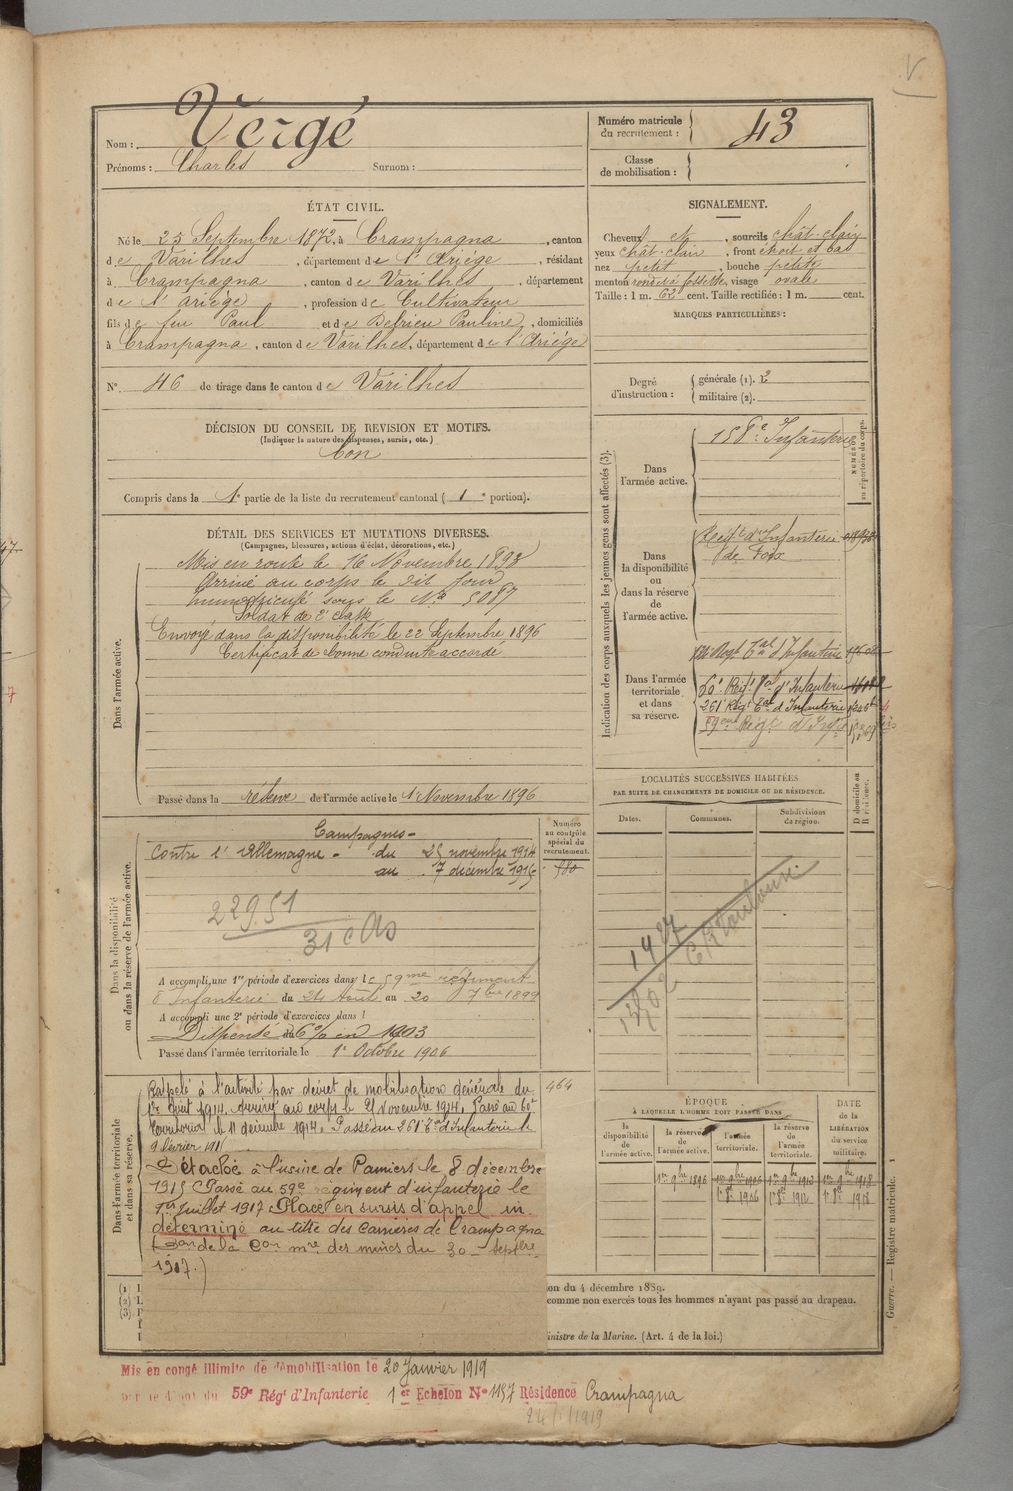 V
Nom : Vergé
Prénoms : Charles Surnom :
Numéro matricule du recrutement : 43
Classe de mobilisation :
ÉTAT CIVIL.
Né le 25 Septembre 1872, à Crampagna, canton
de Varilhes, département de l'Ariège, résidant
à Crampagna, canton de Varilhes, département
de l'Ariège, profession de Cultivateur
fils de feu Paul et de Debrieu Pauline, domiciliés
à Crampagna, canton de Varilhes, département de l'Ariège
N° 46 de tirage dans le canton de Varilhes
SIGNALEMENT.
Cheveux et, sourcils chât-clair
yeux chât-clair, front étroit et bas
nez petit, bouche petite
menton rond et à fossette, visage ovale
Taille : 1 m. 62 cent. Taille rectifiée : 1 m. cent.
MARQUES PARTICULIÈRES :
Degré d'instruction : générale (1). 2
militaire (2).
DÉCISION DU CONSEIL DE REVISION ET MOTIFS.
(Indiquer la nature des dispenses, sursis, etc.)
bon
Compris dans la 1e partie de la liste du recrutement cantonal (1e portion).
DÉTAIL DES SERVICES ET MUTATIONS DIVERSES.
(Campagnes, blessures, actions d'éclat, décorations, etc.)
Dans l'armée active.
Mis en route le 16 Novembre 1893
Arrivé au corps le dit jour
immatriculé sous le N° 5087
Soldat de 2e classe
Envoyé dans la disponibilité le 22 Septembre 1896
Certificat de bonne conduite accordé
Passé dans la réserve de l'armée active le 1 Novembre 1896
Indication des corps auxquels les jeunes gens sont affectés (3).
NUMÉROS au répertoire du corps.
Dans l'armée active.
158e Infanterie
Dans la disponibilité ou dans la réserve de l'armée active.
Régt d'Infanterie
de Foix
Dans l'armée territoriale et dans sa réserve.
Régt Tal d'Infanterie
60e Régt Tal d'Infanterie
261e Régt Tal d'Infanterie
59eme Régt d'Infie
LOCALITÉS SUCCESSIVES HABITÉES
PAR SUITE DE CHANGEMENTS DE DOMICILE OU DE RÉSIDENCE.
Dates. Communes. Subdivisions de région. D domicile ou R résidence.
1927
CR Toulouse
Dans la disponibilité ou dans la réserve de l'armée active.
Numéro au contrôle spécial du recrutement.
980
Campagnes -
Contre l'Allemagne - du 25 novembre 1914
au 7 décembre 1915
22951
31 c as
A accompli une 1re période d'exercices dans le 59me régiment
d'Infanterie du 24 Août au 20 7bre 1899
A accompli une 2e période d'exercices dans l
Dispensé en 1903
Passé dans l'armée territoriale le 1er Octobre 1906
Dans l'armée territoriale et dans sa réserve.
464
Rappelé à l'activité par décret de mobilisation générale du
1er Août 1914. Arrivé au corps le 25 Novembre 1914. Passé au 60e
Territorial le 11 décembre 1914. Passé au 261e Tal d'Infanterie le
9 février 191
Détaché à l'usine de Pamiers le 8 décembre
1915 Passé au 59e régiment d'infanterie le
1er Juillet 1917. Placé en sursis d'appel in-
déterminé au titre des carrières de Crampagna
(Don de la Con mre des mines du 30 septbre
1917.)
ÉPOQUE
À LAQUELLE L'HOMME DOIT PASSER DANS
la disponibilité de l'armée active. la réserve de l'armée active. l'armée territoriale. la réserve de l'armée territoriale.
DATE de la LIBÉRATION du service militaire.
1er 9bre 1896 1er 9bre 1906 1er 9bre 1912 1er 9bre 1918
1er 8bre 1906 1er 8bre 1912 1er 8bre 1918
(1)
(2)
(3)
on du 4 décembre 1889.
comme non exercés tous les hommes n'ayant pas passé au drapeau.
inistre de la Marine. (Art. 4 de la loi.)
Guerre. — Registre matricule. 1
Mis en congé illimité de démobilisation le 20 Janvier 1919
par le dépôt du 59e Régt d'Infanterie 1er Echelon N° 1157 Résidence Crampagna
24/1/1919